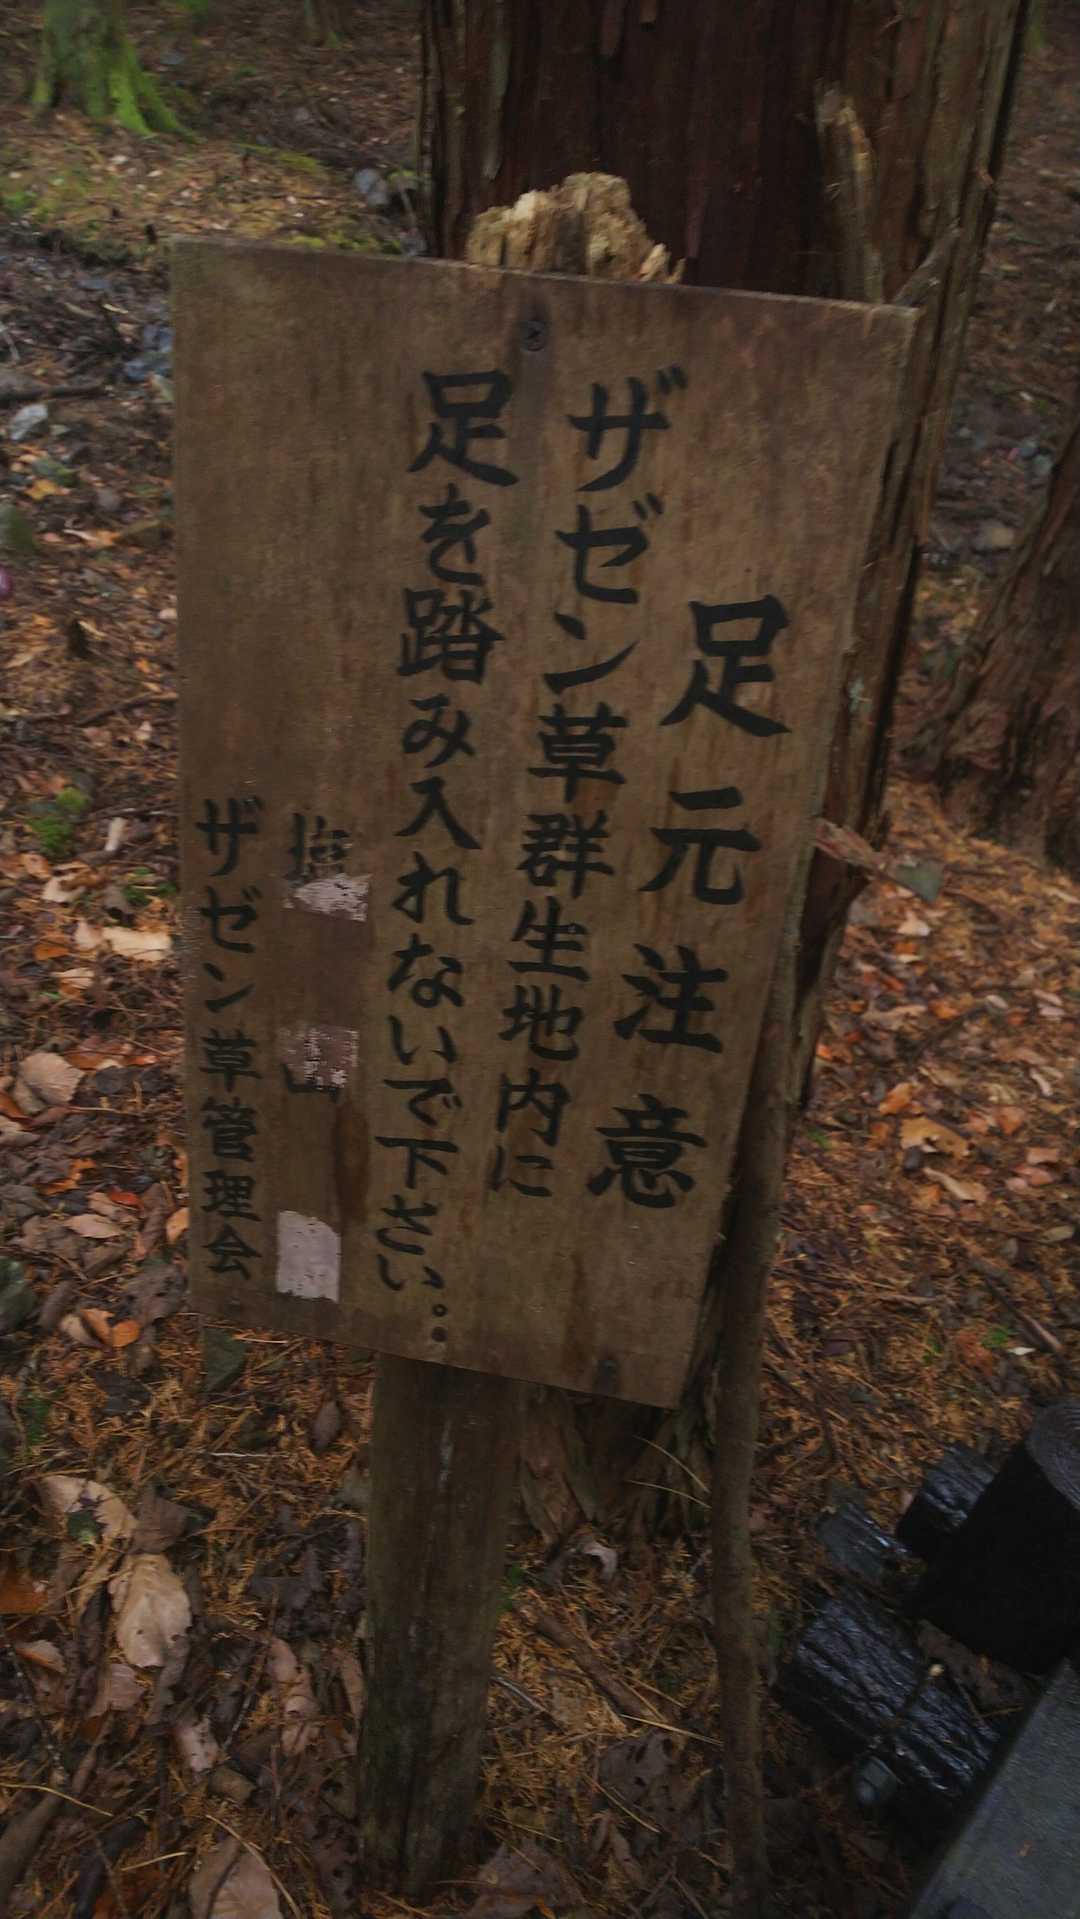 足元注意
ザゼン草群生地内に
足を踏み入れないで下さい。
塩山
ザゼン草管理会